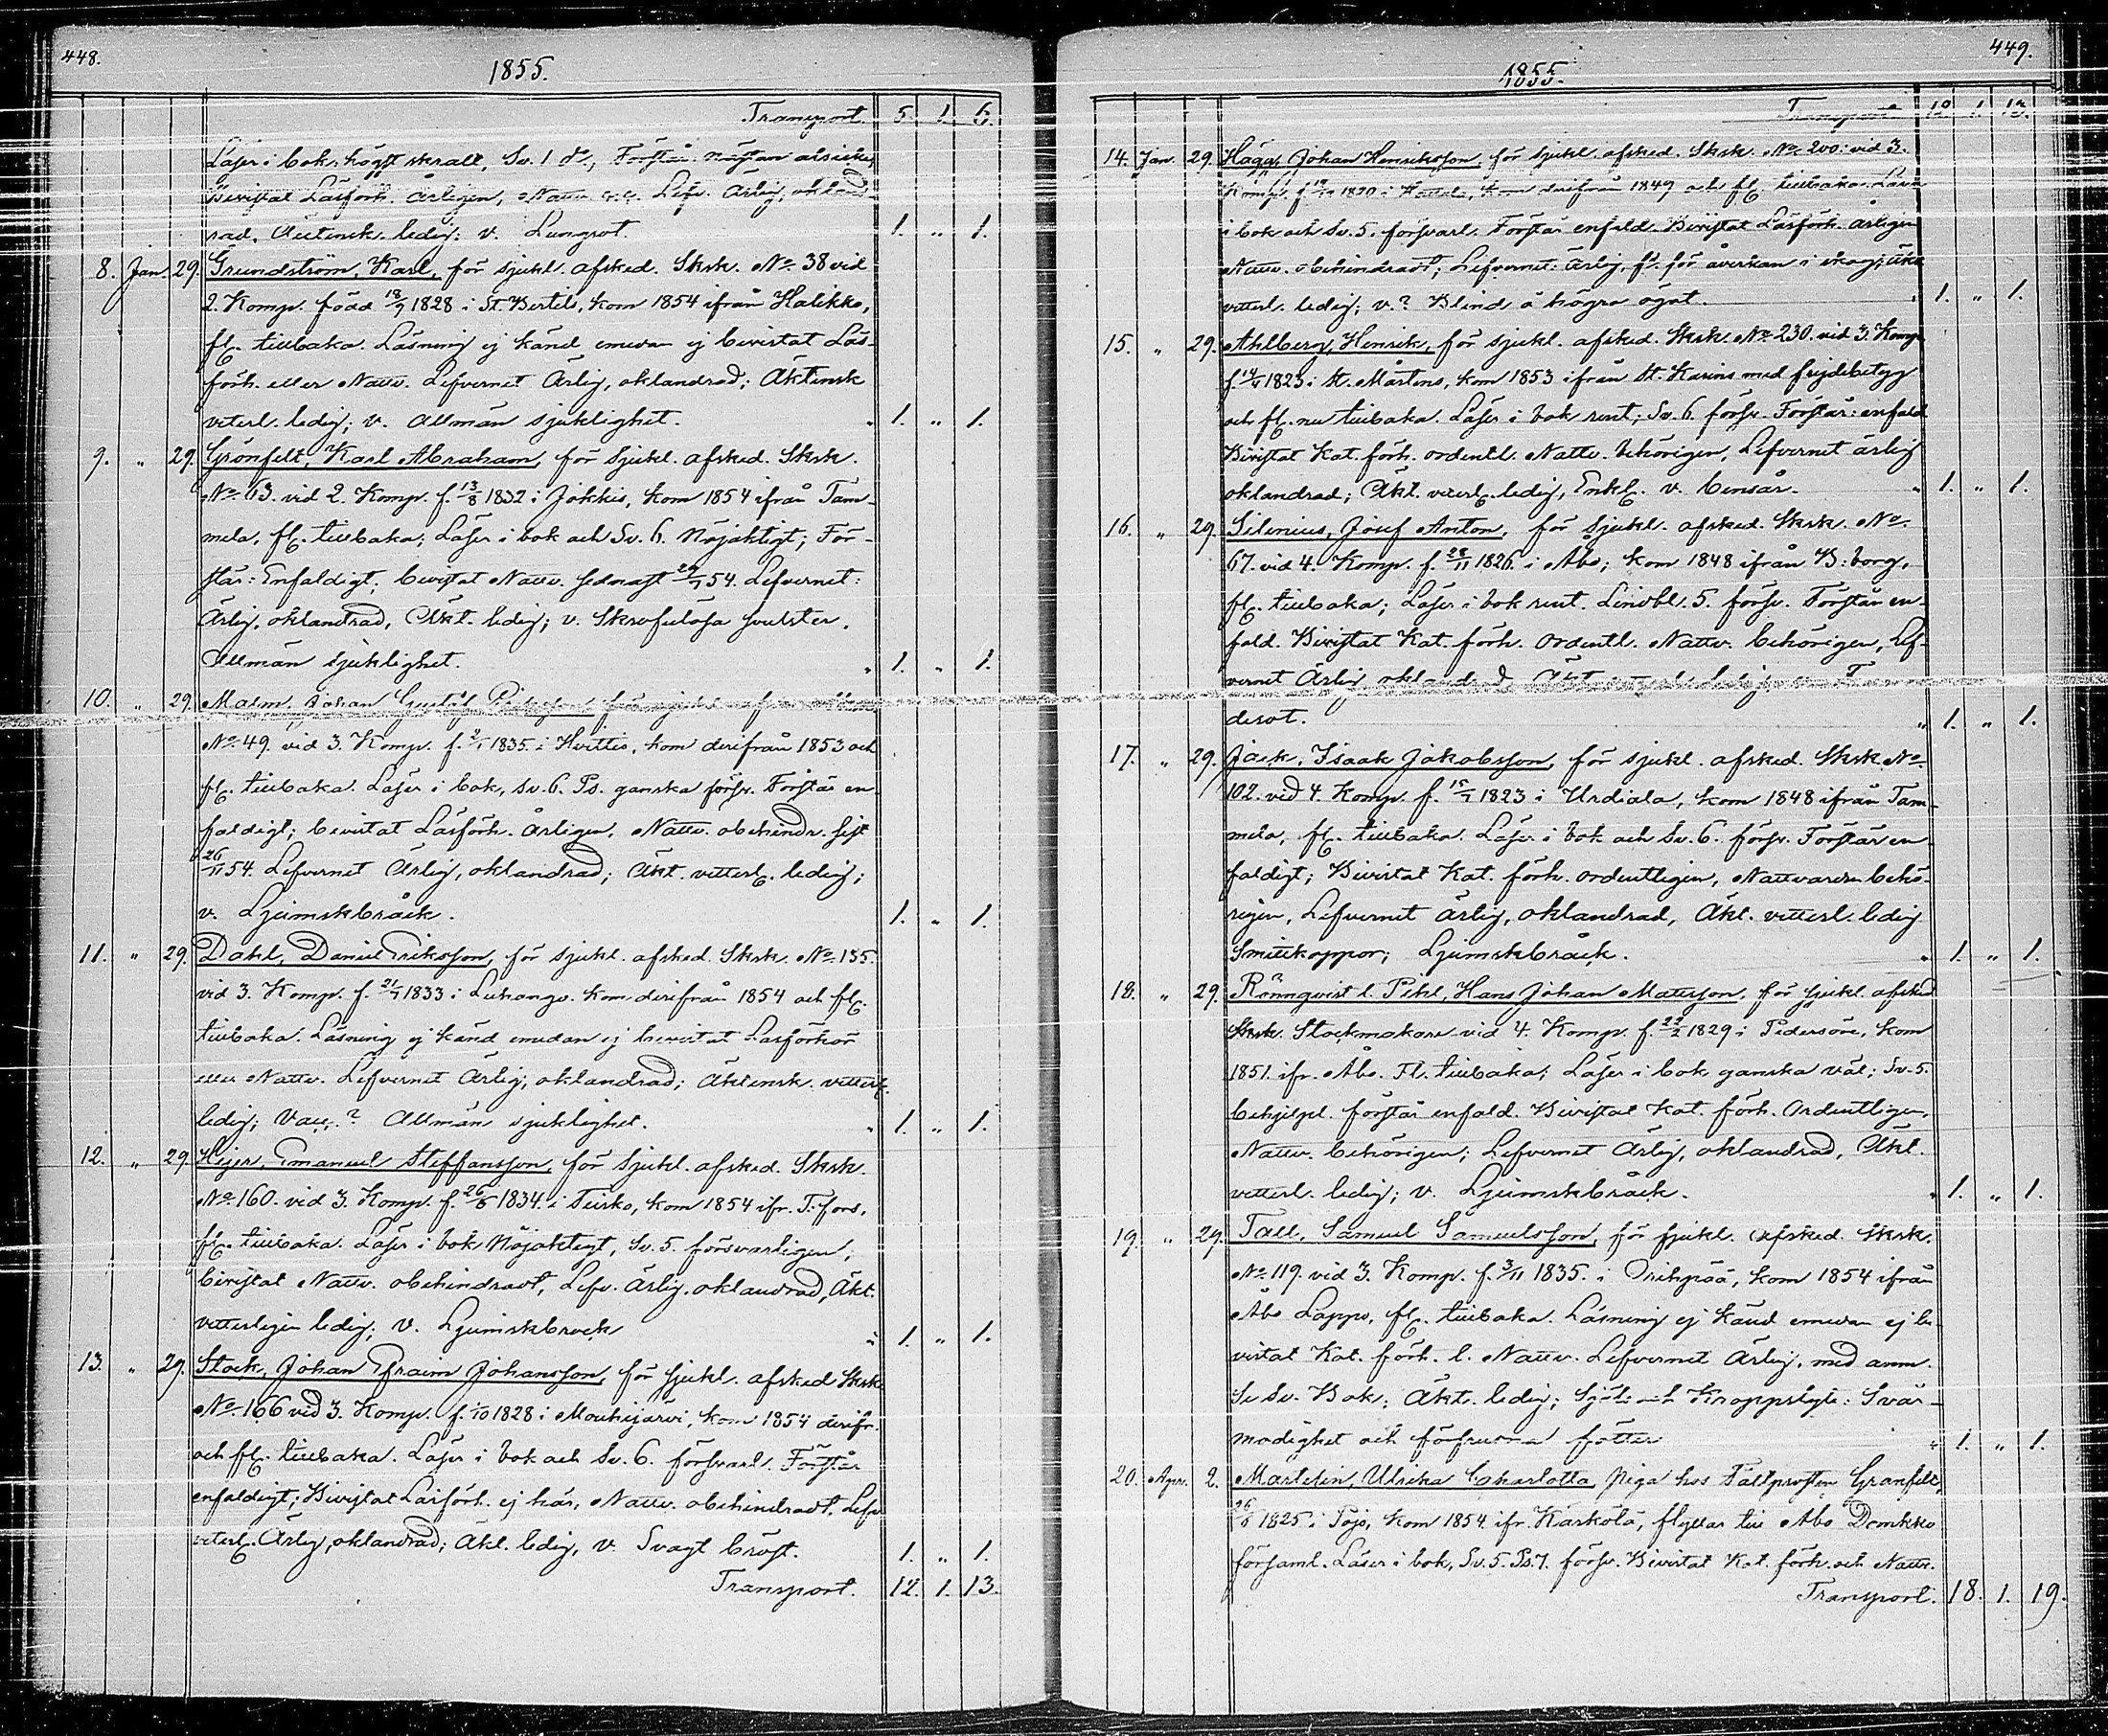 448.
1855.
Transport. 5. 1. 6.
Läser i bok högst skralt, Sv. 1 d°, Förstår nästan alsicke,
Bevistat Läsförh. årligen, Nattv. Lefv. Ärlig, okland-
rad. Äktensk. ledig; v. Lungrot. 1. " 1.
8. Jan. 29. Grundström, Karl, för sjukl. afsked. Sksk. No. 38 vid
2. Komp. född 18/9 1828 i St. Bertils, kom 1854 ifrån Halikko,
fl. tillbaka. Läsning ej känd emedan ej bevistat Läs-
förh. eller Nattv. Lefvernet Ärlig, oklandrad; Äktensk
veterl. ledig; v. Allmän sjuklighet. " 1. " 1.
9. " 29. Grönfelt, Karl Abraham, för sjukl. afsked. Sksk.
No. 63. vid 2. Komp. f. 13/8 1832 i Jokkis, kom 1854 ifrån Tam-
mela, fl. tillbaka; Läser i bok och Sv. 6. Nöjaktigt; För-
står: Enfaldigt; bevistat Nattv. sednast 29/1 54. Lefvernet:
Ärlig, oklandrad, Äkt. ledig; v. Skrofulösa svulster.
Allmän sjuklighet. " 1. " 1.
10. " 29. Malm, Johan Gustaf
No. 49. vid 3. Komp. f. 2/1 1835. i Hvittis, kom derifrån 1853 och
fl. tillbaka. Läser i bok, Sv. 6. Ps. ganska försv. Förstår en-
faldigt; bevistat Läsförh. Årligen, Nattv. obehindr. sist
26/11 54. Lefvernet Ärlig, oklandrad; Äkt. vitterl. ledig;
v. Ljumskbråck. 1. " 1.
11. " 29. Dahl, Daniel Eriksson, för sjukl. afsked. Sksk. No. 135.
vid 3. Komp. f. 21/7 1833 i Luhango. kom derifrån 1854 och fl.
tillbaka. Läsning ej känd emedan ej bevistat Läsförhör
eller Nattv. Lefvernet Ärlig, oklandrad; Äktensk. vitterl.
ledig; Vacc.? Allmän sjuklighet. " 1. " 1.
12. " 29. Hejer, Emanuel Steffansson, för sjukl. afsked. Sksk.
No. 160. vid 3. Komp. f. 26/6 1834. i Teisko, kom 1854 ifr. T:fors,
fl. tillbaka. Läser i bok Nöjaktigt, Sv. 5. försvarligen,
bevistat Nattv. obehindradt, Lefv. Ärlig, oklandrad, Äkt.
vetterligen ledig; V. Ljumskbrock " 1. " 1.
13. " 29. Stock, Johan Efraim Johansson, för sjukl. afsked Sksk
No. 166 vid 3. Komp. f. 1/10 1828 i Mouhijärvi, kom 1854 derifr.
och fl. tillbaka. Läser i bok och Sv. 6. försvarl. Förstår
enfaldigt; Bevistat Läsförh. ej här, Nattv. obehindradt. Lefv
veterl. Ärlig, oklandrad; Äkt. ledig, v. Svagt bröst. 1. " 1.
Transport. 12. 1. 13.
449.
1855.
Transport 12. 1. 13.
14. Jan. 29. Hägg, Johan Henriksson, för sjukl. afsked. Sksk. No. 200. vid 3.
Komp. f. 1820 i kom derifrån 1849 och fl. tillbaka. Läser
i bok och Sv. 5. försvarl. Förstår enfald. Bevistat Läsförh. årligen
Nattv. obehindradt; Lefvernet: Ärlig, för åverkan i skog; Äkt.
vetterl. ledig; v.? Blind å högra ögat. " 1. " 1.
15. " 29. Ahlberg, Henrik, för sjukl. afsked. Sksk. No. 230. vid 3. Komp
f. 14/5 1823 i St. Mårtens, kom 1853 ifrån St. Karins med frejdebetyg
och fl. nu tillbaka. Läser i bok rent; Sv. 6. försv. Förstår: enfald
Bevistat Kat. förh. ordentl. Nattv. behörigen, Lefvernet ärlig
oklandrad; Äkt. veterl. ledig, Enkl. v. bensår. " 1. " 1.
16. " 29. Silenius, Josef Anton, för sjukl. afsked. Sksk. No.
67. vid 4. Komp. f. 28/11 1826. i Åbo; kom 1848 ifrån B:borg,
fl. tillbaka; Läser i bok rent. Lindbl. 5. försv. Förstår en-
fald. Bevistat Kat. förh. Ordentl. Nattv. behörigen, Lef-
vernet Ärlig
desot. " 1. " 1.
17. " 29. Jack, Isaak Jakobsson, för sjukl. afsked. Sksk. No.
102. vid 4. Komp. f. 15/7 1823 i Urdiala, kom 1848 ifrån Tam-
mela, fl. tillbaka. Läser i bok och Sv. 6. försv. Förstår en-
faldigt; Bevistat Kat. förh. ordentligen, Nattvarden behö-
rigen, Lefvernet ärlig, oklandrad, Äkt. vitterl. ledig
Smittkoppor; Ljumskbråck. " 1. " 1.
18. " 29. Rönnqvist l. Pihl, Hans Johan Mattsson, för sjukl. afsked
Sksk. Stockmakare vid 4. Komp. f. 22/2 1829 i Pedersöre, kom
1851. ifr. Åbo. Fl. tillbaka; Läser i bok ganska väl; Sv. 5.
behjelpl. förstår enfald. Bevistat Kat. förh. Ordentligen,
Nattv. behörigen; Lefvernet Ärlig, oklandrad, Äkt.
vetterl. ledig; v. Ljumskbråck. " 1. " 1.
19. " 29 Tall, Samuel Samuelsson, för sjukl. afsked. Sksk.
No. 119. vid 3. Komp. f. 3/11 1835. i Oripää, kom 1854 ifrån
Åbo Lappo, fl. tillbaka. Läsning ej känd emedan ej be-
vistat Kat. förh. l. Nattv. Lefvernet Ärlig, med anm.
Se Sv. Bok; Äkt. ledig; Själs och Kroppslyte: Svår-
modighet och förfrusna fötter " 1. " 1.
20. Apr. 2. Martelin, Ulrika Charlotta, piga hos Fältprosten Granfelt,
26/8 1825 i Pojo, kom 1854 ifr. Kärkölä, flyttar till Åbo Domkko
församl. Läser i bok, Sv. 5. Ps. 7. försv. Bevistat Kat. förh. och Nattv.
Transport. 18. 1. 19.